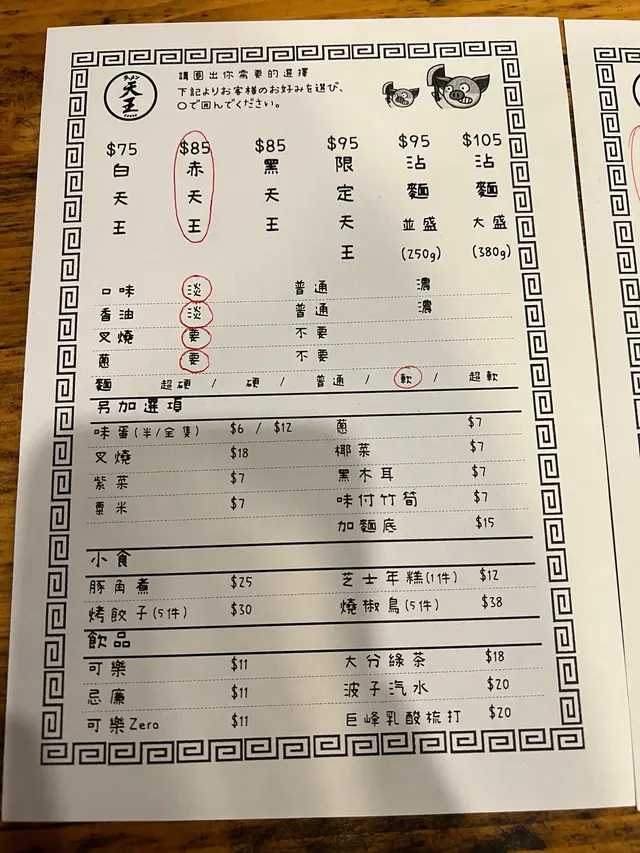 ラーメン
天王
請圈出你需要的選擇
下記よりお客様のお好みを選び、
○で囲んでください。
$75 $85 $85 $95 $95 $105
白天王 赤天王 黑天王 限定天王 沾麵並盛(250g) 沾麵大盛(380g)
口味 淡 普通 濃
香油 淡 普通 濃
叉燒 要 不要
蔥 要 不要
麵 超硬 / 硬 / 普通 / 軟 / 超軟
另加選項
味蛋(半/全隻) $6 / $12 蔥 $7
叉燒 $18 椰菜 $7
紫菜 $7 黑木耳 $7
粟米 $7 味付竹筍 $7
加麵底 $15
小食
豚角煮 $25 芝士年糕(1件) $12
烤餃子(5件) $30 燒椒鳥(5件) $38
飲品
可樂 $11 大分綠茶 $18
忌廉 $11 波子汽水 $20
可樂Zero $11 巨峰乳酸梳打 $20